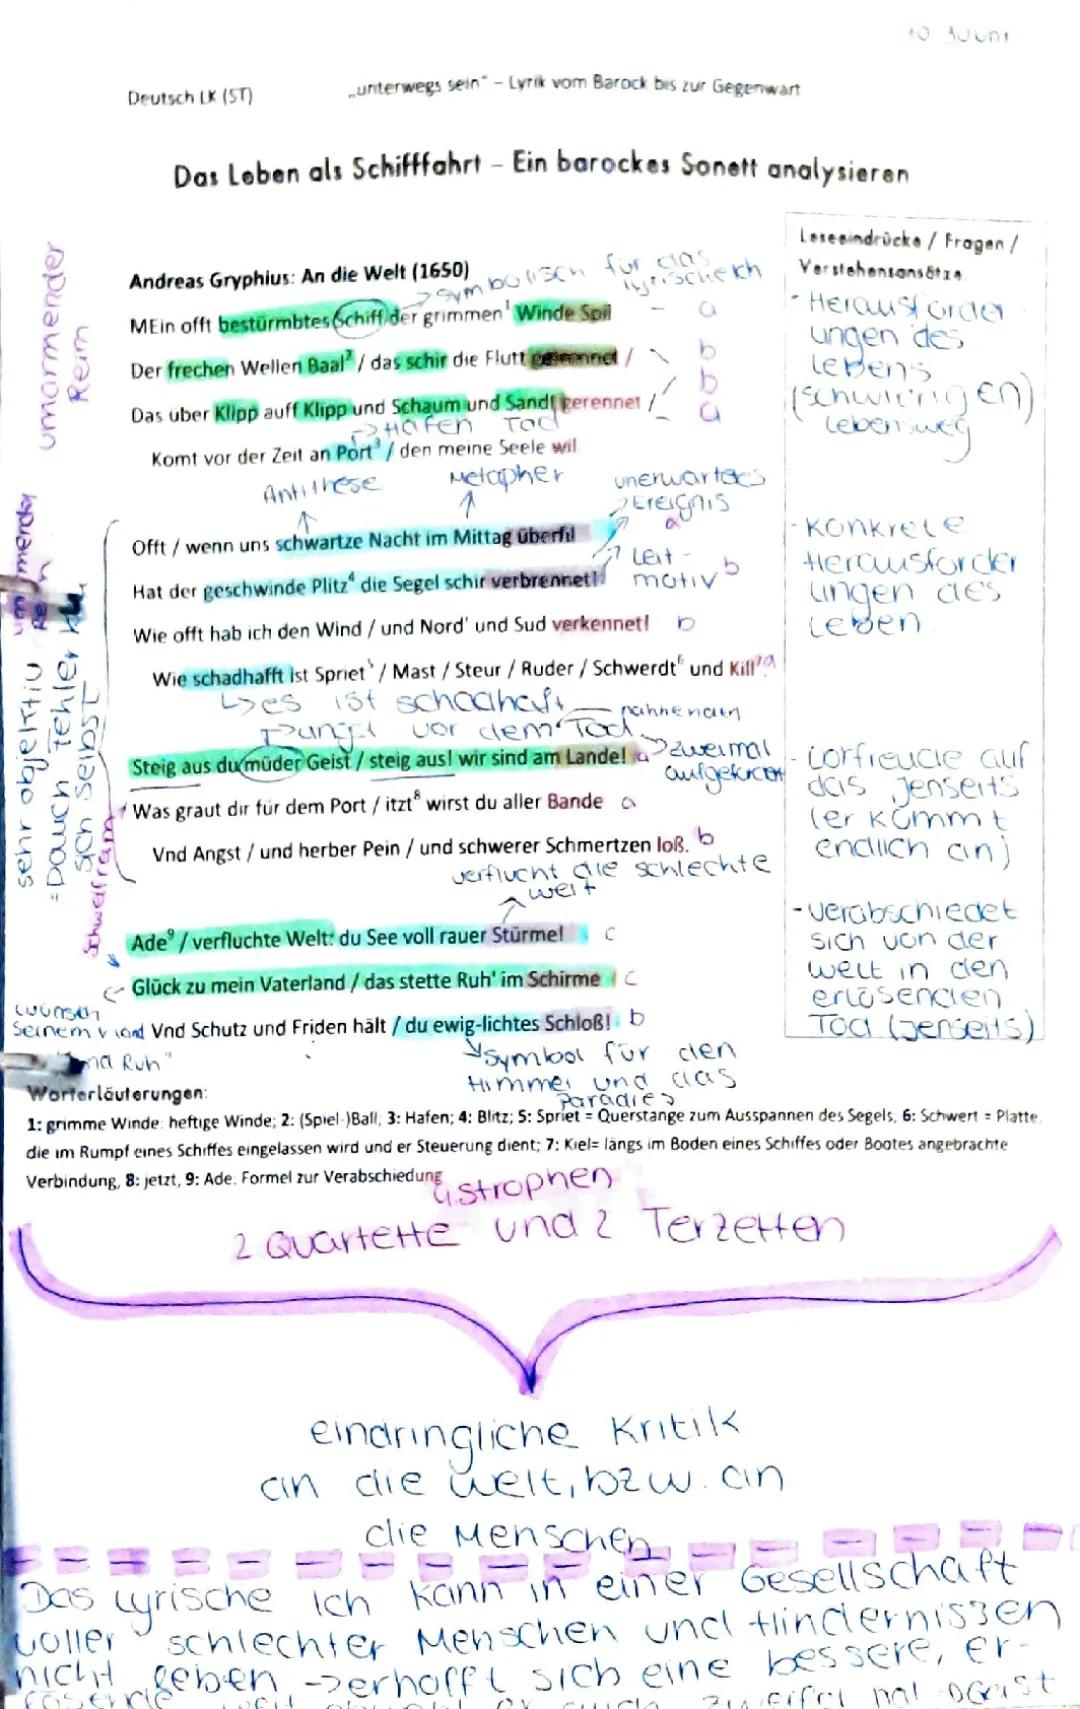 10 Juuni
Deutsch LK (ST)
„unterwegs sein“ – Lyrik vom Barock bis zur Gegenwart
Das Leben als Schifffahrt – Ein barockes Sonett analysieren
umarmender
Reim
Andreas Gryphius: An die Welt (1650)
→ symbolisch für das
lyrische Ich
MEin offt bestürmbtes Schiff der grimmen¹ Winde Spil – a
Der frechen Wellen Baal² / das schir die Flutt / b
Das uber Klipp auff Klipp und Schaum und Sandt gerennet / b
→ Hafen Tod
a
Komt vor der Zeit an Port³ / den meine Seele wil
Antithese
Metapher
unerwartetes
Ereignis
a
Offt / wenn uns schwartze Nacht im Mittag überfil
Leit-
motiv b
Hat der geschwinde Plitz⁴ die Segel schir verbrennet!
Wie offt hab ich den Wind / und Nord' und Sud verkennet! b
Wie schadhafft ist Spriet⁵ / Mast / Steur / Ruder / Schwerdt⁶ und Kill⁷ a
↳ es ist schadhaft
Angst vor dem Tod
Steig aus du müder Geist / steig aus! wir sind am Lande! a
→ zweimal
Was graut dir für dem Port / itzt⁸ wirst du aller Bande a
Vnd Angst / und herber Pein / und schwerer Schmertzen loß. b
verflucht die schlechte
welt
Ade⁹ / verfluchte Welt: du See voll rauer Stürme! c
Glück zu mein Vaterland / das stette Ruh' im Schirme c
Vnd Schutz und Friden hält / du ewig-lichtes Schloß! b
Symbol für den
Himmel und das
Paradies
sehr objektiv
= Dauch Fehler
sich selbst
wünsch
Seinem
Ruh"
Leseeindrücke / Fragen /
Verstehensansätze
- Herausforder
ungen des
Lebens
(schwierigen)
Lebensweg
- Konkrete
Herausforder
ungen des
Leben
- Vorfreude auf
das Jenseits
(er kommt
endlich an)
- verabschiedet
sich von der
Welt in den
erlösenden
Tod (Jenseits)
Worterläuterungen:
1: grimme Winde: heftige Winde; 2: (Spiel-)Ball; 3: Hafen; 4: Blitz; 5: Spriet = Querstange zum Ausspannen des Segels, 6: Schwert = Platte,
die im Rumpf eines Schiffes eingelassen wird und er Steuerung dient; 7: Kiel= längs im Boden eines Schiffes oder Bootes angebrachte
Verbindung, 8: jetzt, 9: Ade. Formel zur Verabschiedung
4 strophen
2 Quartette und 2 Terzetten
eindringliche Kritik
an die Welt, bzw. an
die Menschen
Das lyrische Ich kann in einer Gesellschaft
voller schlechter Menschen und Hindernissen
nicht leben → erhofft sich eine bessere, er-